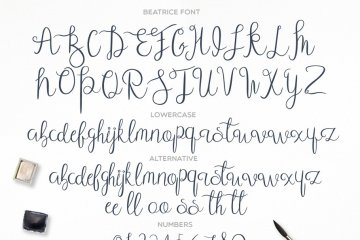 BEATRICE FONT
ABCDEFGHIJKLM
NOPQRSTUVWXYZ
LOWERCASE
abcdefghijklmnopqrstuvwxyz
ALTERNATIVE
abcdefghijklmnopqrstuvwxyz
ee ll oo ss th tt
NUMBERS